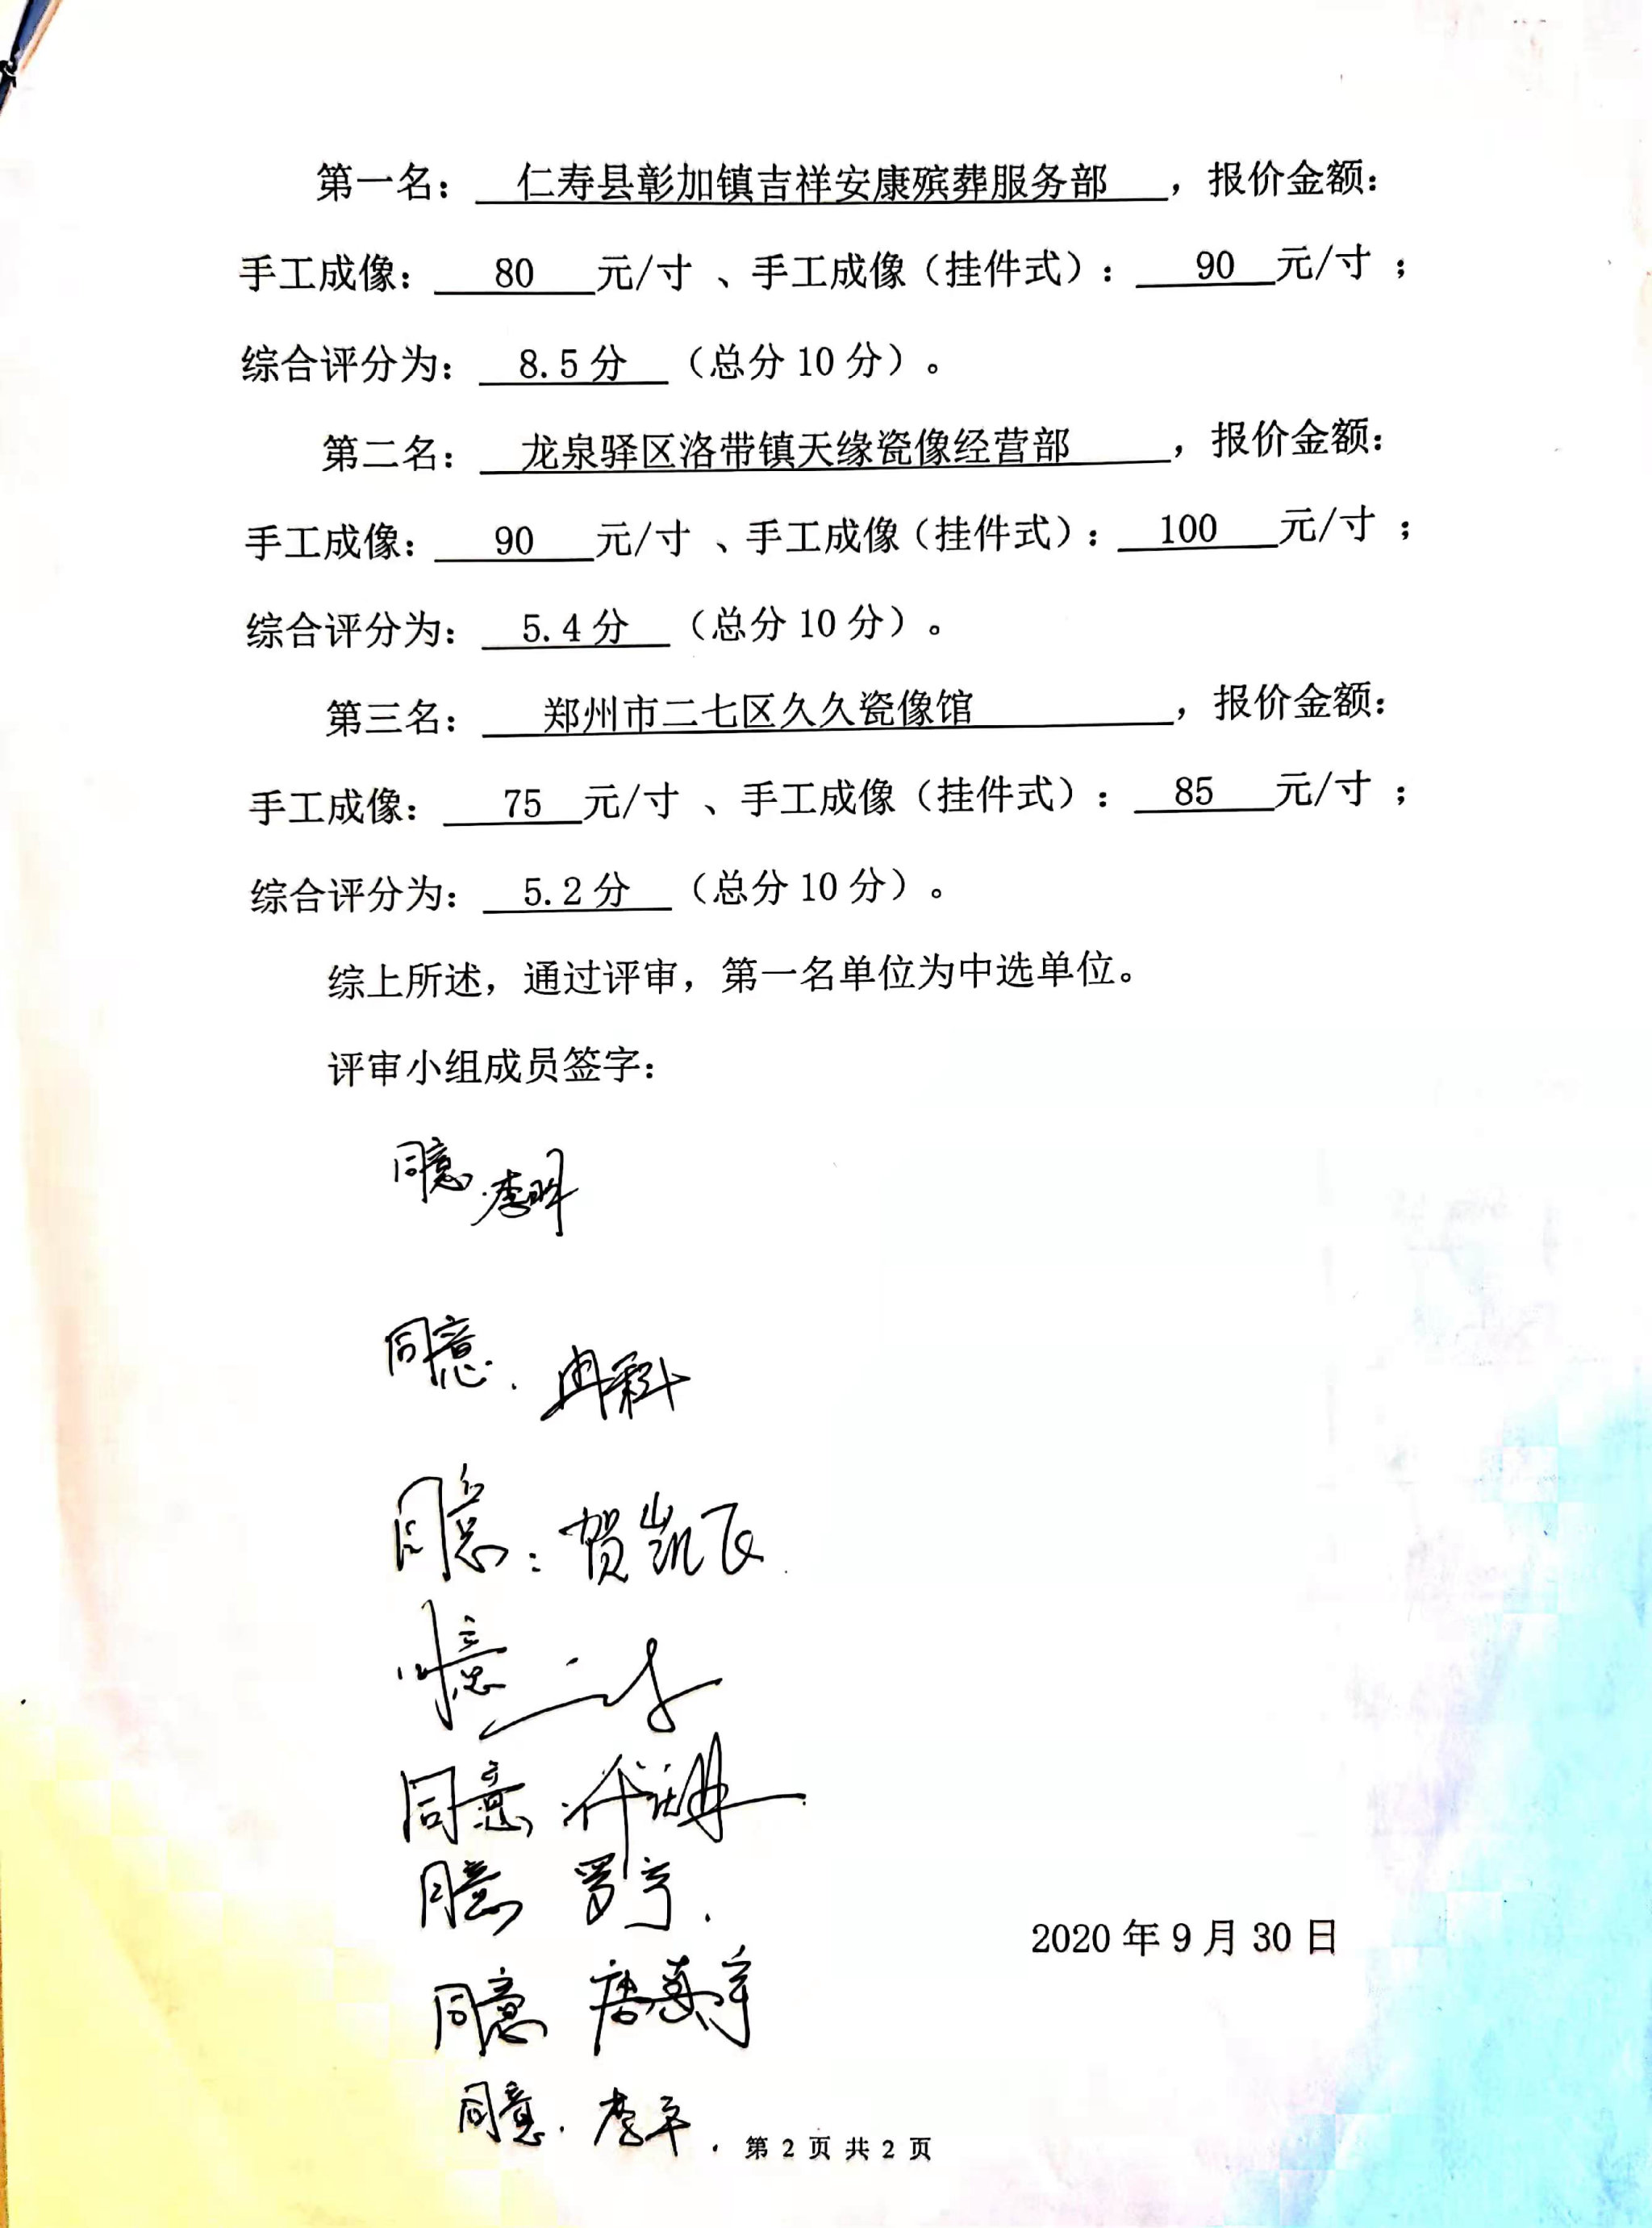 第一名： 仁寿县彰加镇吉祥安康殡葬服务部 ，报价金额：
手工成像： 80 元/寸 、手工成像（挂件式）： 90 元/寸 ；
综合评分为： 8.5分 （总分10分）。
第二名： 龙泉驿区洛带镇天缘瓷像经营部 ，报价金额：
手工成像： 90 元/寸 、手工成像（挂件式）： 100 元/寸 ；
综合评分为： 5.4分 （总分10分）。
第三名： 郑州市二七区久久瓷像馆 ，报价金额：
手工成像： 75 元/寸 、手工成像（挂件式）： 85 元/寸 ；
综合评分为： 5.2分 （总分10分）。
综上所述，通过评审，第一名单位为中选单位。
评审小组成员签字：
同意
同意.
同意：贺凯飞
同意
同意
同意 罗亨.
2020年9月30日
同意
同意. 李平.
第 2 页 共 2 页